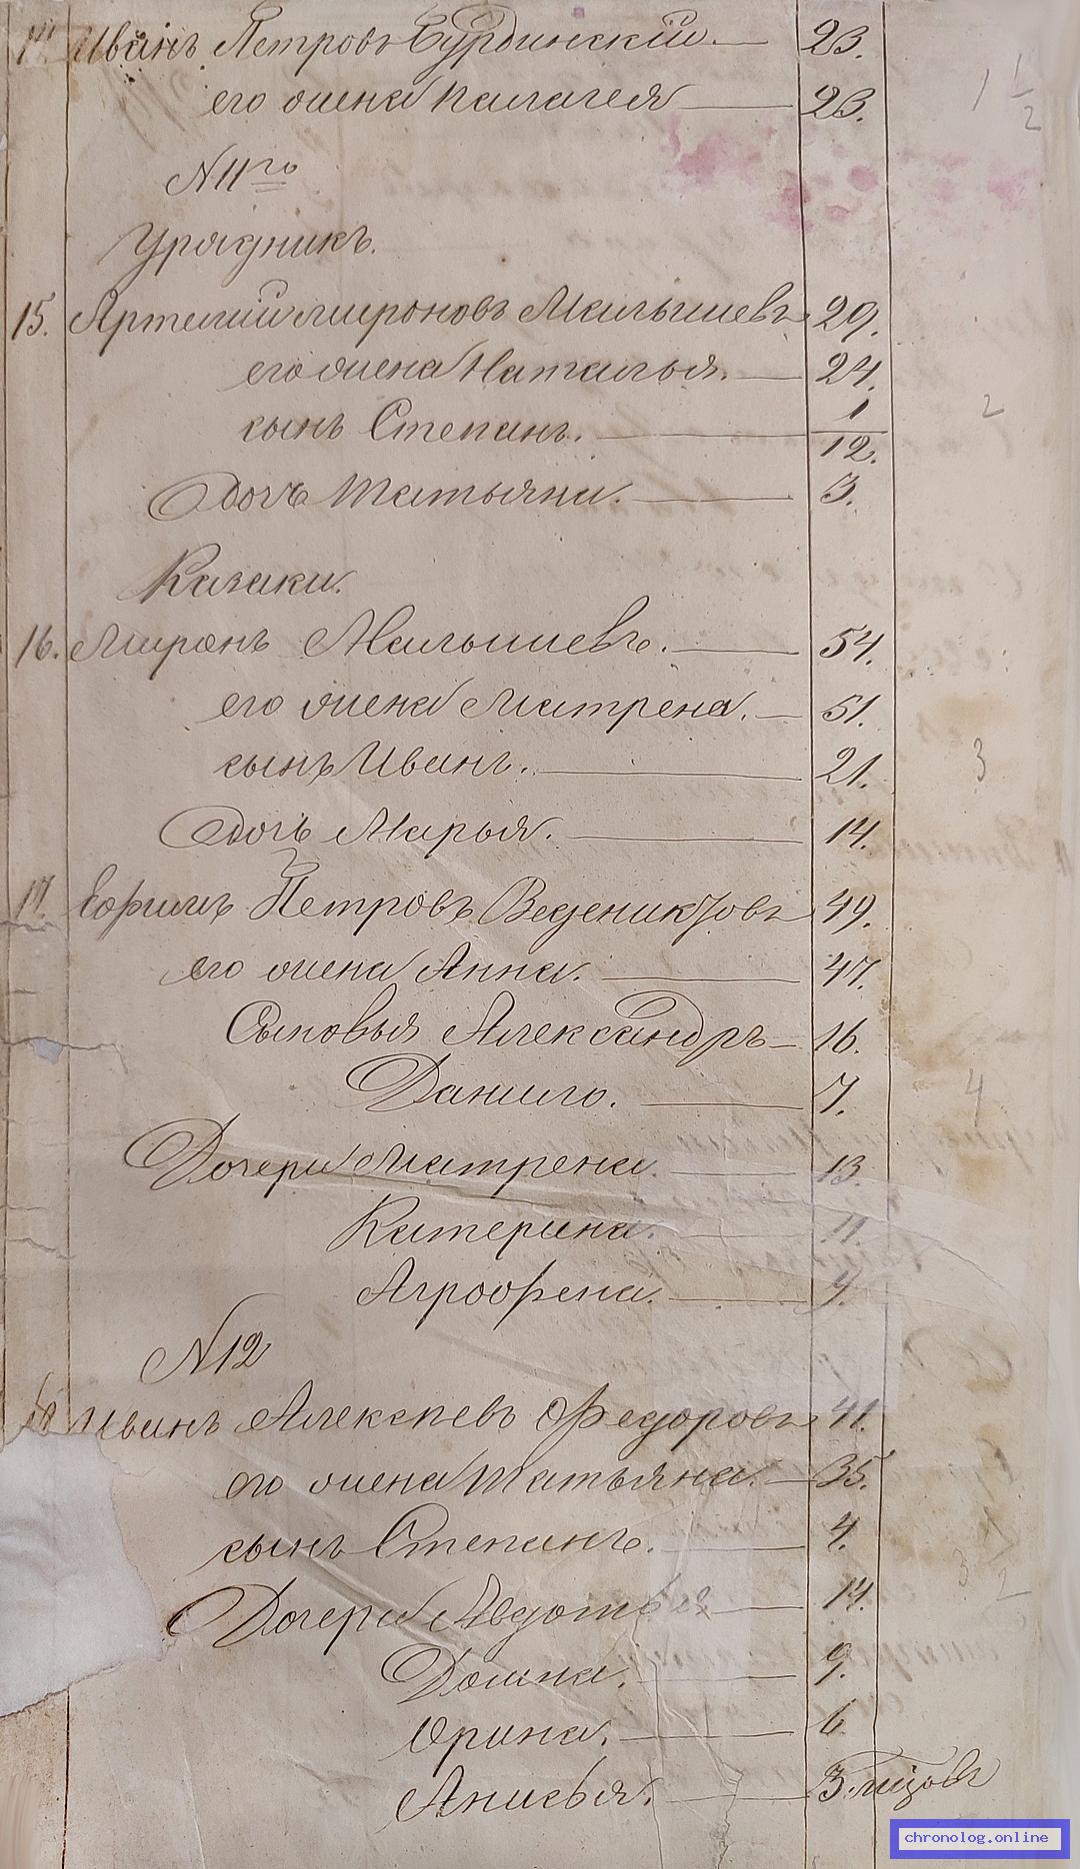 14. Иванъ Петровъ Бурдинскій. 23.
его жена Палагея 23.
1 1/2
N 11го
Урядникъ.
15. Артемій Мироновъ Малышевъ 29.
его жена Наталья. 24.
сынъ Степанъ. 1/12.
2
дочь Татьяна. 3.
Казаки.
16. Миронъ Малышевъ. 54.
его жена Матрена. 51.
сынъ Иванъ. 21.
3
дочь Марья. 14.
17. Ефимъ Петровъ Веденихтовъ 49.
его жена Анна. 47.
Сыновья Александръ 16.
Данило. 7.
4
Дочери Матрена. 13.
Катерина. 11.
Агрофена. 4.
N 12
18 Иванъ Алексѣевъ Федоровъ 41.
его жена Татьяна. 35.
сынъ Степанъ. 4.
3 1/2
Дочери Авдотья 14.
Домна. 9.
Орина. 6
Анисья. 3.
chronolog.online